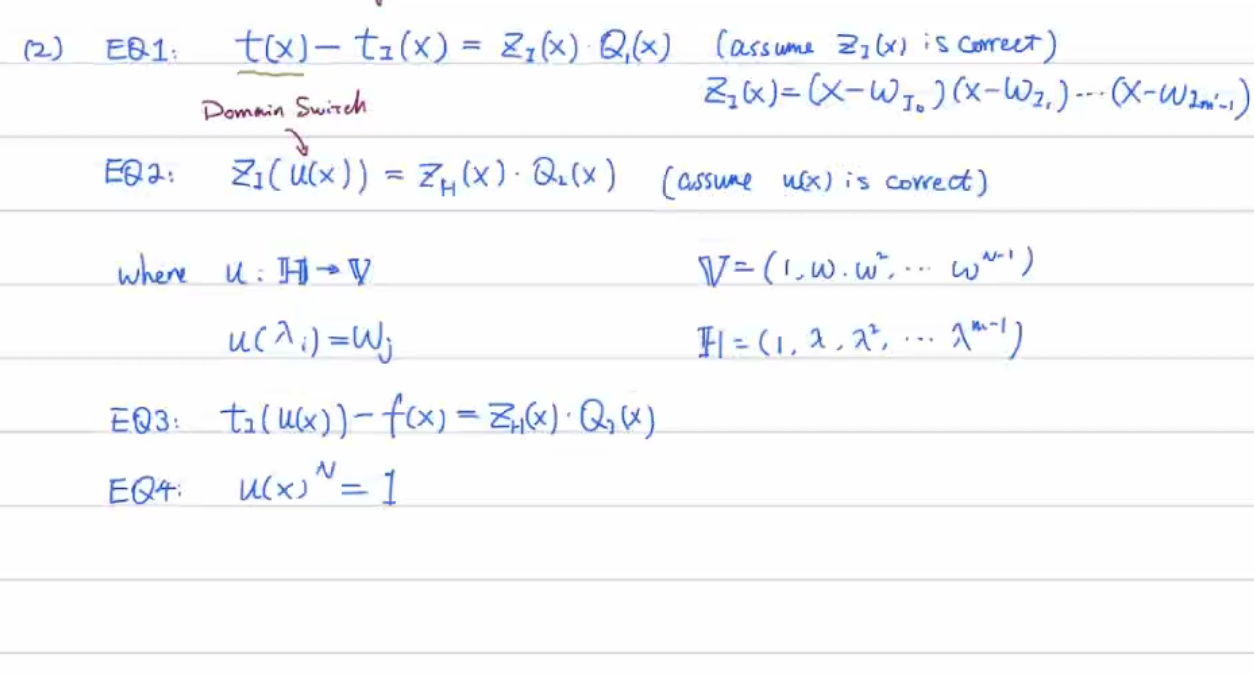 (2) EQ1: t(x) − t_I(x) = Z_I(x) · Q_1(x) (assume Z_I(x) is correct)
Z_I(x) = (x−ω_{I_0})(x−ω_{I_1})⋯(x−ω_{I_{m'-1}})
Domain Switch
EQ2: Z_I(u(x)) = Z_H(x) · Q_2(x) (assume u(x) is correct)
where u : ℍ → 𝕍 𝕍 = (1, ω, ω², ⋯ ω^{N-1})
u(λ_i) = ω_j ℍ = (1, λ, λ², ⋯ λ^{m-1})
EQ3: t_I(u(x)) − f(x) = Z_H(x) · Q_3(x)
EQ4: u(x)^N = 1